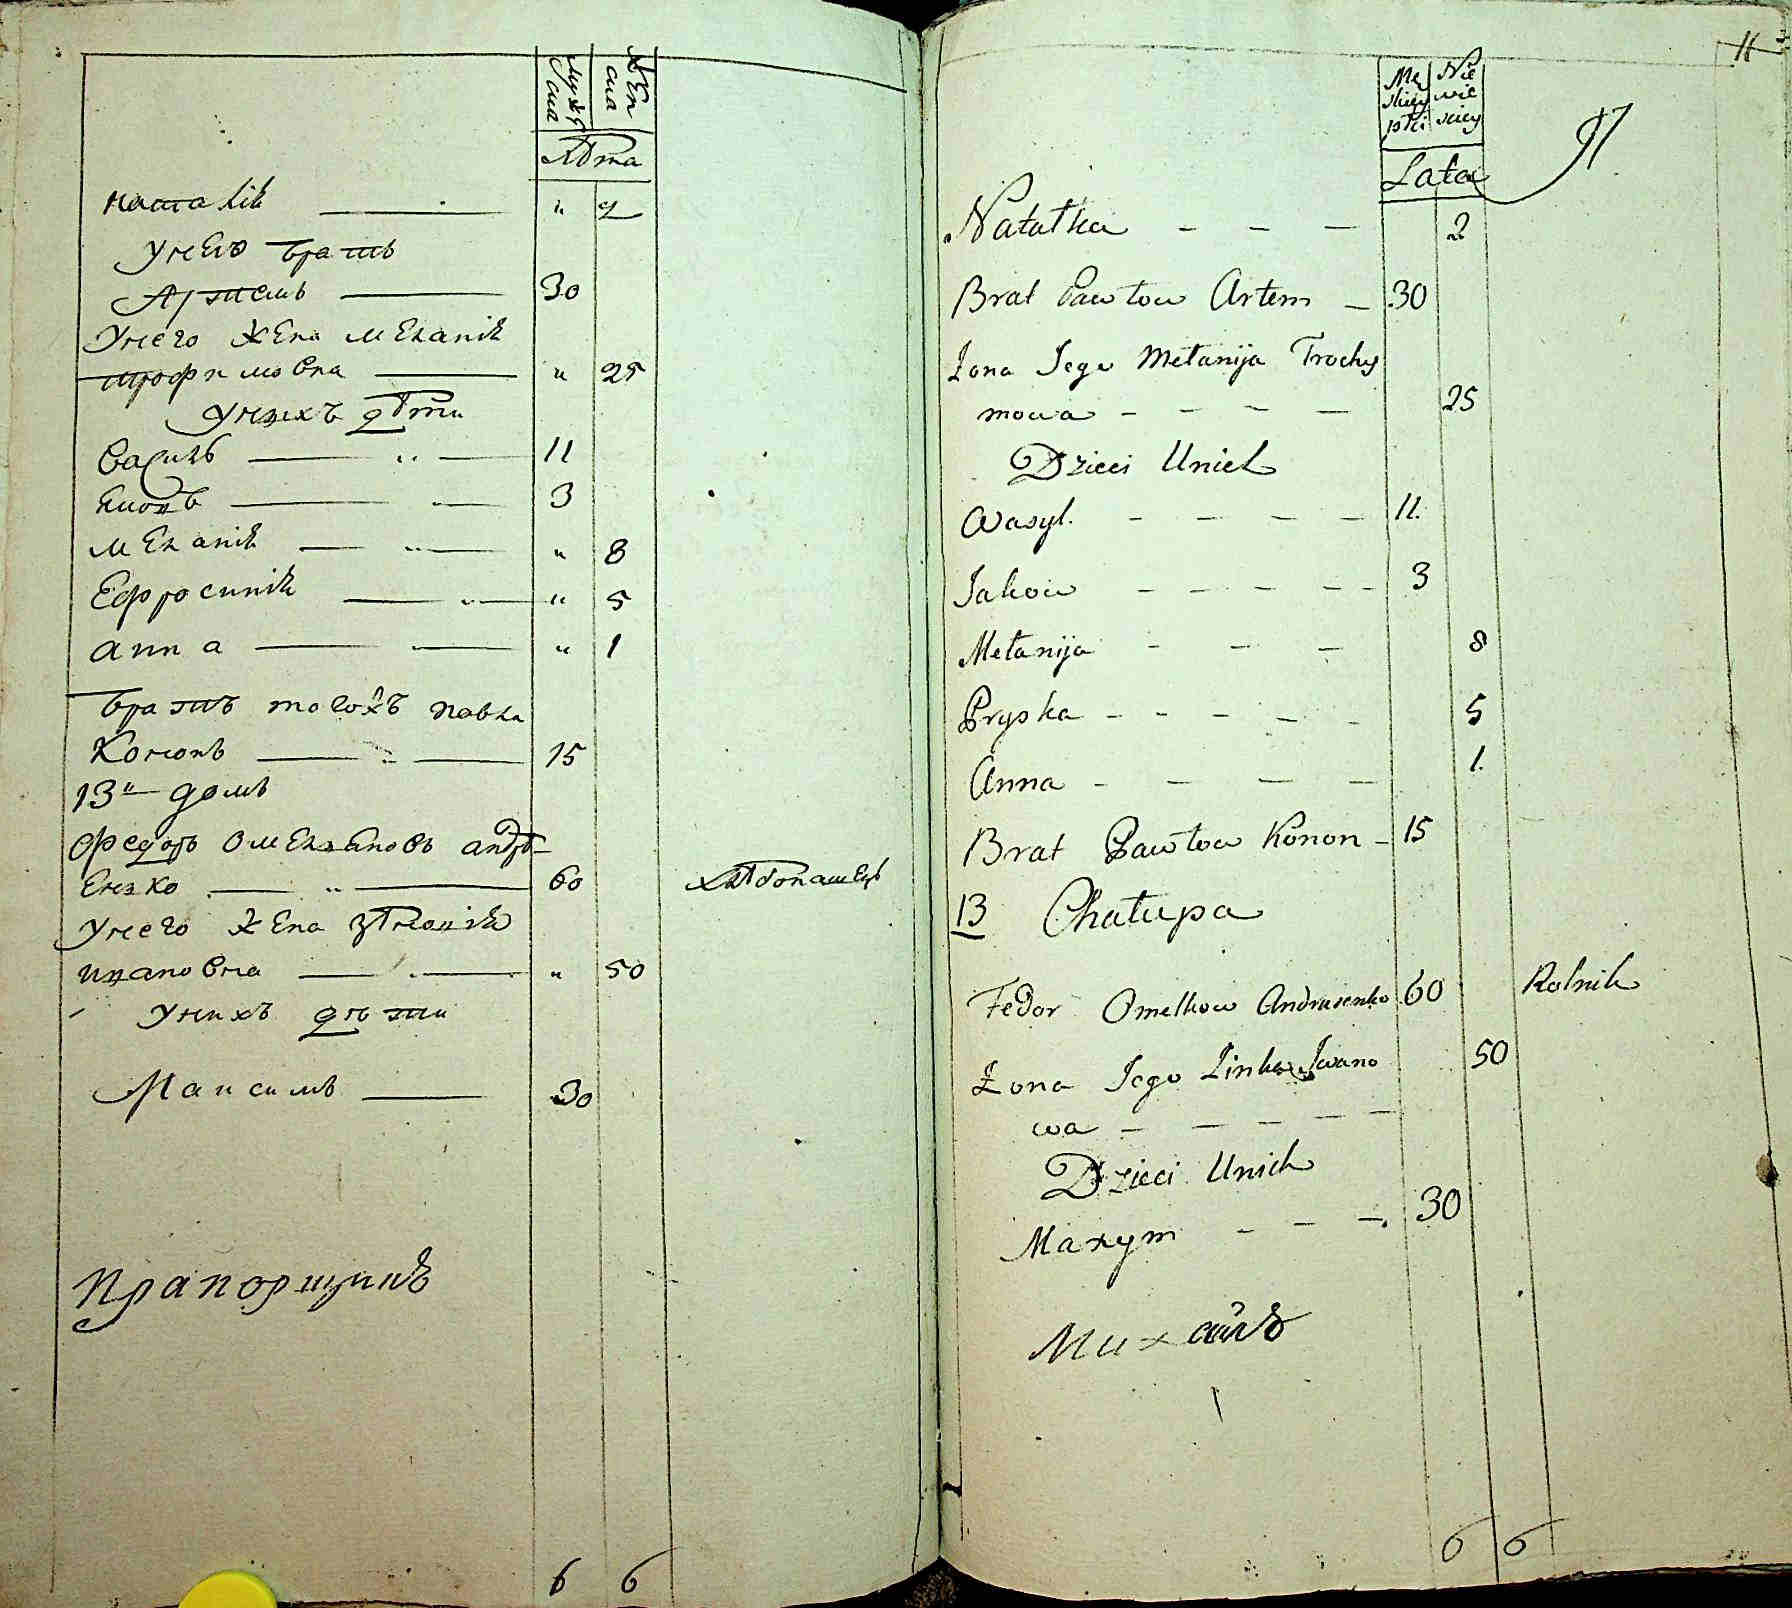 Мужеска
Женска
Лѣта
наталіѧ " 2
Унего братъ
Артемъ 30
Унего жена меланіѧ
трофимовна " 25
Унихъ дѣти
Василь 11
Яковъ 3
Меланіѧ " 8
Ефросиніѧ " 5
анна " 1
братъ тогожъ павла
Кононъ 15
13й домъ
Федоръ Омеляновъ андрѣ-
енко 60 хлѣбопашецъ
Унего жена
ивановна " 50
Унихъ дѣти
Максимъ 30
Прапорщикъ
6 6
11
Męskiey płci
Niewieściey
Lata
Natałka - - - 2
Brat Pawłow Artem - 30
Żona Jego Mełanija Trochy
mowa - - - - 25
Dzieci Unich
Wasyl. - - - - 11.
Jakow - - - - - 3
Mełanija - - - 8
Pryska - - - - - 5
Anna - - - - 1.
Brat Pawłow Konon - 15
13 Chałupa
Fedor Omelkow Andrusenko 60 Rolnik
Żona Jego Zinka Iwano 50
wa - - - - -
Dzieci Unich
Maxym - - -. 30
Михайлъ
6 6